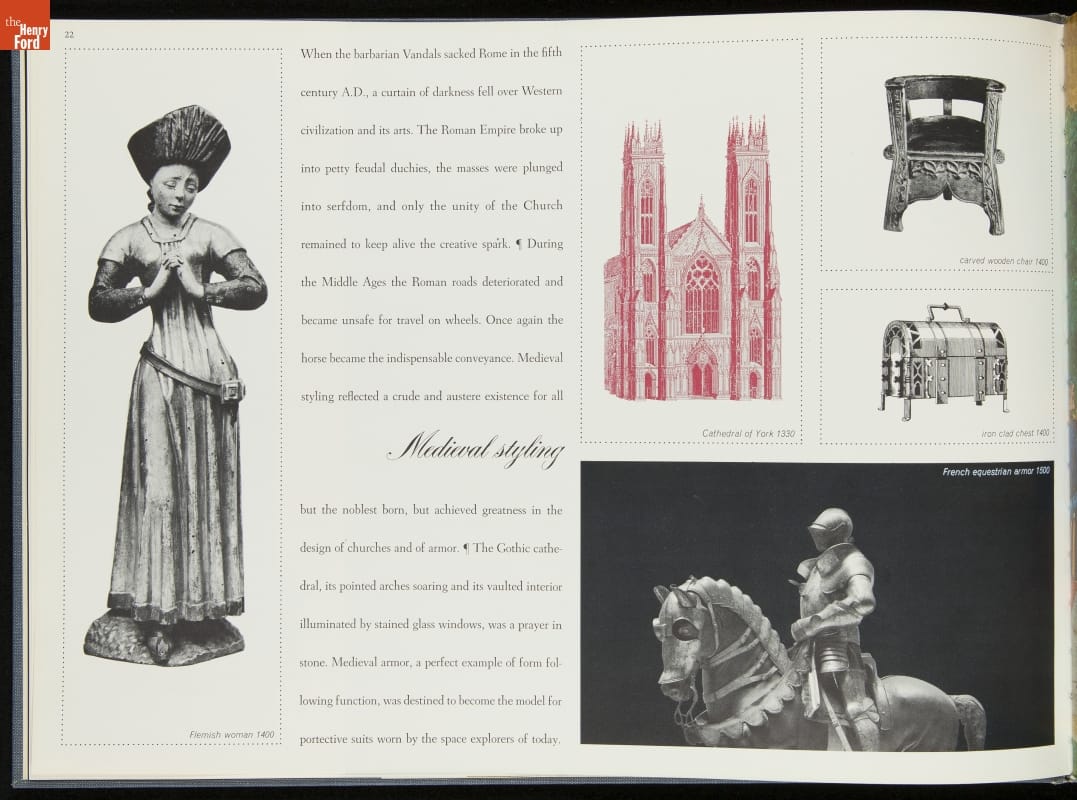 the
Henry
Ford
22
When the barbarian Vandals sacked Rome in the fifth
century A.D., a curtain of darkness fell over Western
civilization and its arts. The Roman Empire broke up
into petty feudal duchies, the masses were plunged
into serfdom, and only the unity of the Church
remained to keep alive the creative spark. ¶ During
the Middle Ages the Roman roads deteriorated and
became unsafe for travel on wheels. Once again the
horse became the indispensable conveyance. Medieval
styling reflected a crude and austere existence for all
Medieval styling
but the noblest born, but achieved greatness in the
design of churches and of armor. ¶ The Gothic cathe-
dral, its pointed arches soaring and its vaulted interior
illuminated by stained glass windows, was a prayer in
stone. Medieval armor, a perfect example of form fol-
lowing function, was destined to become the model for
portective suits worn by the space explorers of today.
Flemish woman 1400
Cathedral of York 1330
carved wooden chair 1400
iron clad chest 1400
French equestrian armor 1500